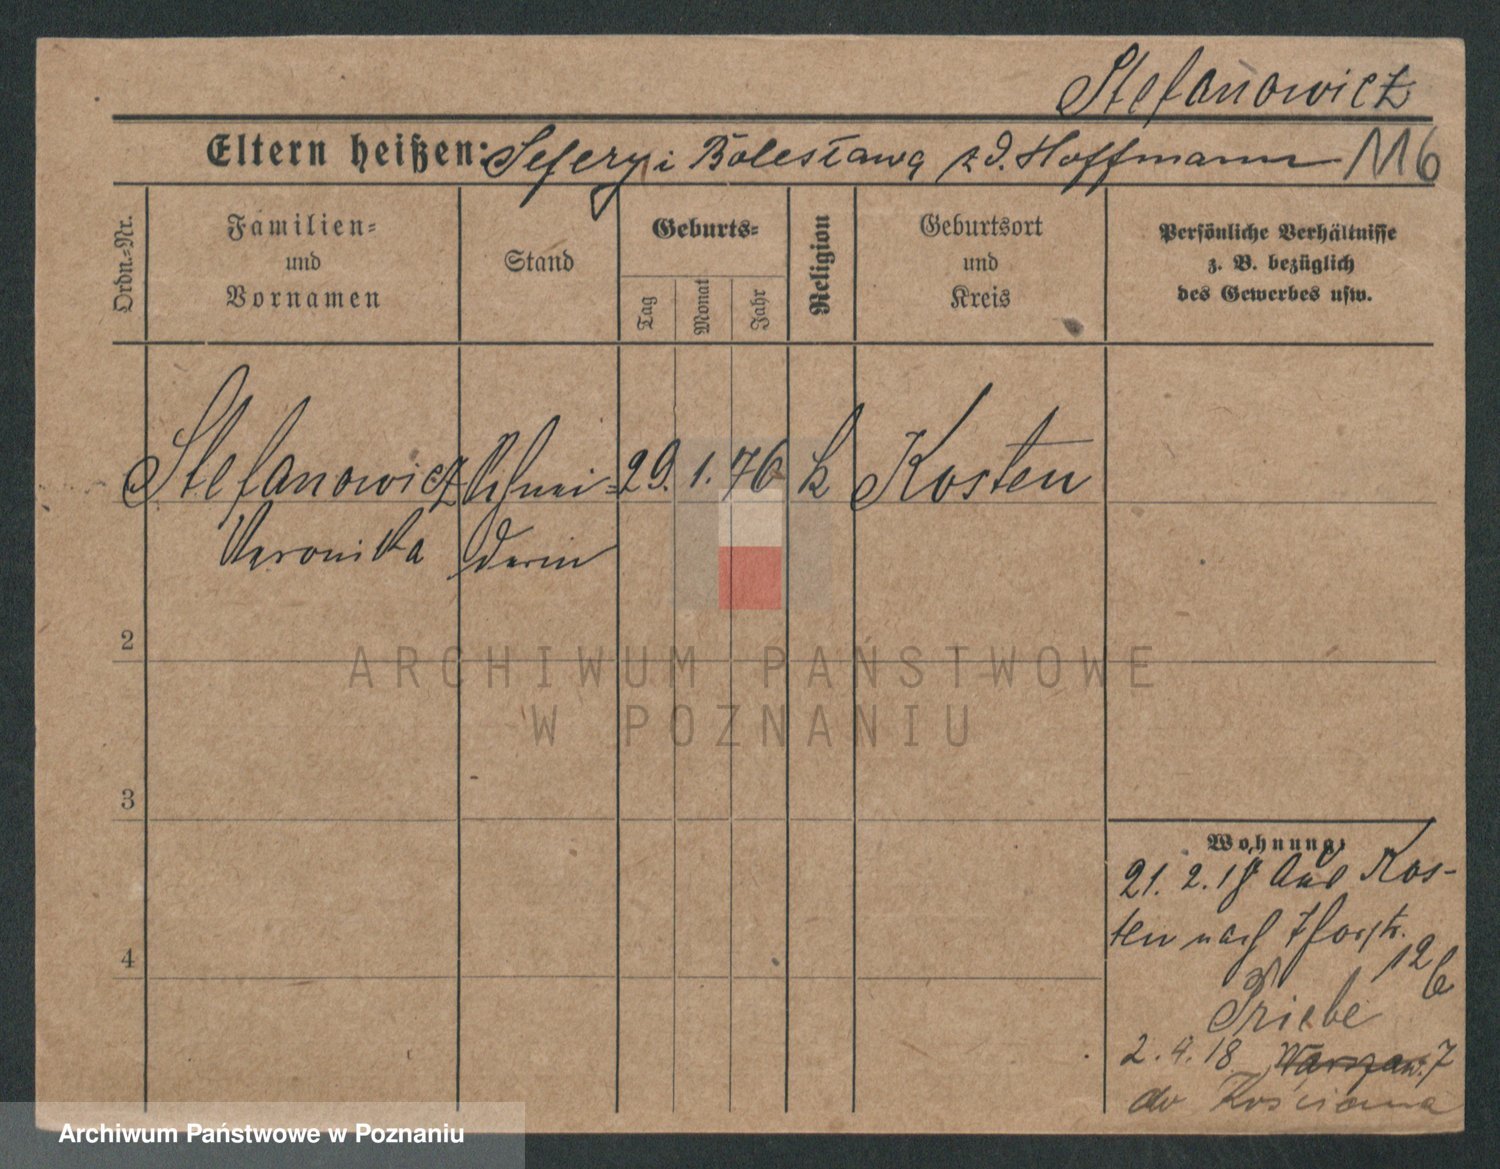 Stefanowicz
Eltern heißen: Sefery i Bolesława z d. Hoffmann 116
Ordn.-Nr.
Familien-
und
Vornamen
Stand
Geburts-
Tag
Monat
Jahr
Religion
Geburtsort
und
Kreis
Persönliche Verhältnisse
z. B. bezüglich
des Gewerbes usw.
Stefanowicz Schnei- 29. 1. 76 k Kosten
Veronika derin
2
3
4
Wohnung:
21. 2. 18 Aus Kos-
ten nach
12
Priebe
2. 4. 18 Warszaw. 7
do Kościana
ARCHIWUM PAŃSTWOWE
W POZNANIU
Archiwum Państwowe w Poznaniu